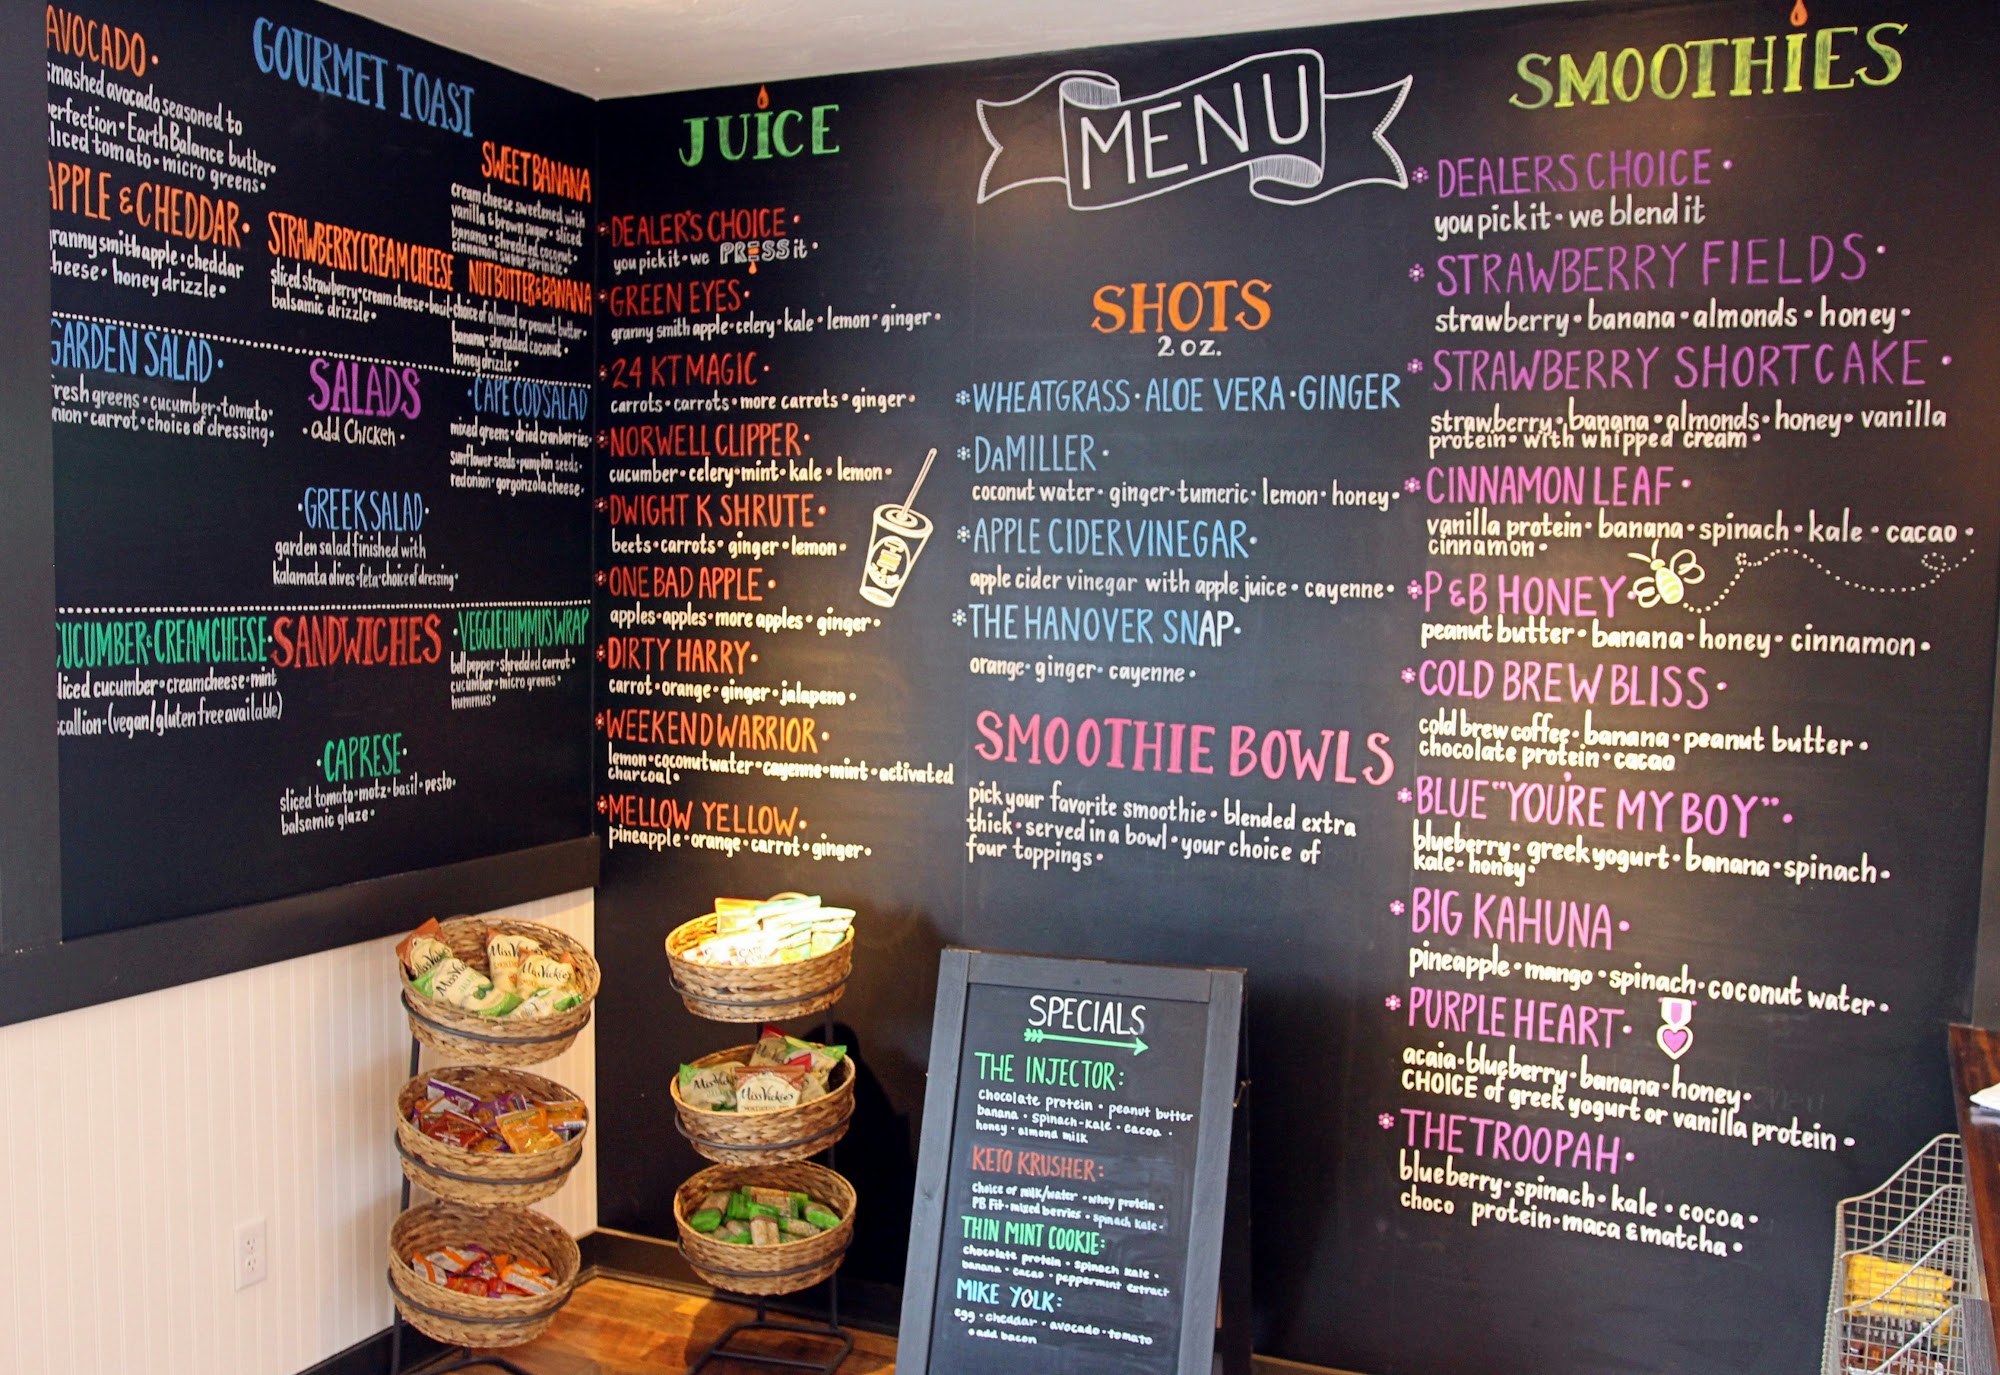 GOURMET TOAST
AVOCADO •
smashed avocado seasoned to
perfection • Earth Balance butter •
sliced tomato • micro greens •
APPLE & CHEDDAR •
granny smith apple • cheddar
cheese • honey drizzle •
STRAWBERRY CREAM CHEESE
sliced strawberry • cream cheese • basil •
balsamic drizzle •
SWEET BANANA
cream cheese sweetened with
vanilla & brown sugar • sliced
banana • shredded coconut •
cinnamon sugar sprinkle •
NUT BUTTER & BANANA
choice of almond or peanut butter •
banana • shredded coconut •
honey drizzle •
SALADS
• add Chicken •
GARDEN SALAD •
fresh greens • cucumber • tomato •
onion • carrot • choice of dressing •
• GREEK SALAD •
garden salad finished with
kalamata olives • feta • choice of dressing •
• CAPE COD SALAD
mixed greens • dried cranberries •
sunflower seeds • pumpkin seeds •
red onion • gorgonzola cheese •
SANDWICHES
CUCUMBER & CREAM CHEESE •
sliced cucumber • cream cheese • mint
scallion • (vegan/gluten free available)
• CAPRESE •
sliced tomato • motz • basil • pesto •
balsamic glaze •
• VEGGIE HUMMUS WRAP
bell pepper • shredded carrot •
cucumber • micro greens •
hummus •
JUICE
DEALER'S CHOICE •
you pick it • we PRESS it •
GREEN EYES •
granny smith apple • celery • kale • lemon • ginger •
24 KT MAGIC •
carrots • carrots • more carrots • ginger •
NORWELL CLIPPER •
cucumber • celery • mint • kale • lemon •
DWIGHT K SHRUTE •
beets • carrots • ginger • lemon •
ONE BAD APPLE •
apples • apples • more apples • ginger •
DIRTY HARRY •
carrot • orange • ginger • jalapeno •
WEEKEND WARRIOR •
lemon • coconut water • cayenne • mint • activated
charcoal •
MELLOW YELLOW •
pineapple • orange • carrot • ginger •
MENU
SHOTS
2 oz.
WHEATGRASS • ALOE VERA • GINGER
DaMILLER •
coconut water • ginger • tumeric • lemon • honey •
APPLE CIDER VINEGAR •
apple cider vinegar with apple juice • cayenne •
THE HANOVER SNAP •
orange • ginger • cayenne •
SMOOTHIE BOWLS
pick your favorite smoothie • blended extra
thick • served in a bowl • your choice of
four toppings •
SMOOTHIES
DEALERS CHOICE •
you pick it • we blend it
STRAWBERRY FIELDS •
strawberry • banana • almonds • honey •
STRAWBERRY SHORTCAKE •
strawberry • banana • almonds • honey • vanilla
protein • with whipped cream •
CINNAMON LEAF •
vanilla protein • banana • spinach • kale • cacao •
cinnamon •
P & B HONEY •
peanut butter • banana • honey • cinnamon •
COLD BREW BLISS •
cold brew coffee • banana • peanut butter •
chocolate protein • cacao
BLUE "YOU'RE MY BOY" •
blueberry • greek yogurt • banana • spinach •
kale • honey •
BIG KAHUNA •
pineapple • mango • spinach • coconut water •
PURPLE HEART •
acaia • blueberry • banana • honey •
CHOICE of greek yogurt or vanilla protein •
THE TROOPAH •
blueberry • spinach • kale • cocoa •
choco protein • maca & matcha •
SPECIALS
THE INJECTOR:
chocolate protein • peanut butter
banana • spinach-kale • cacoa •
honey • almond milk
KETO KRUSHER:
choice of milk/water • whey protein •
PB Fit • mixed berries • spinach kale •
THIN MINT COOKIE:
chocolate protein • spinach kale •
banana • cacao • peppermint extract
MIKE YOLK:
egg • cheddar • avocado • tomato
• add bacon
Miss Vickie's
Miss Vickie's
Miss Vickie's
Miss Vickie's
Miss Vickie's